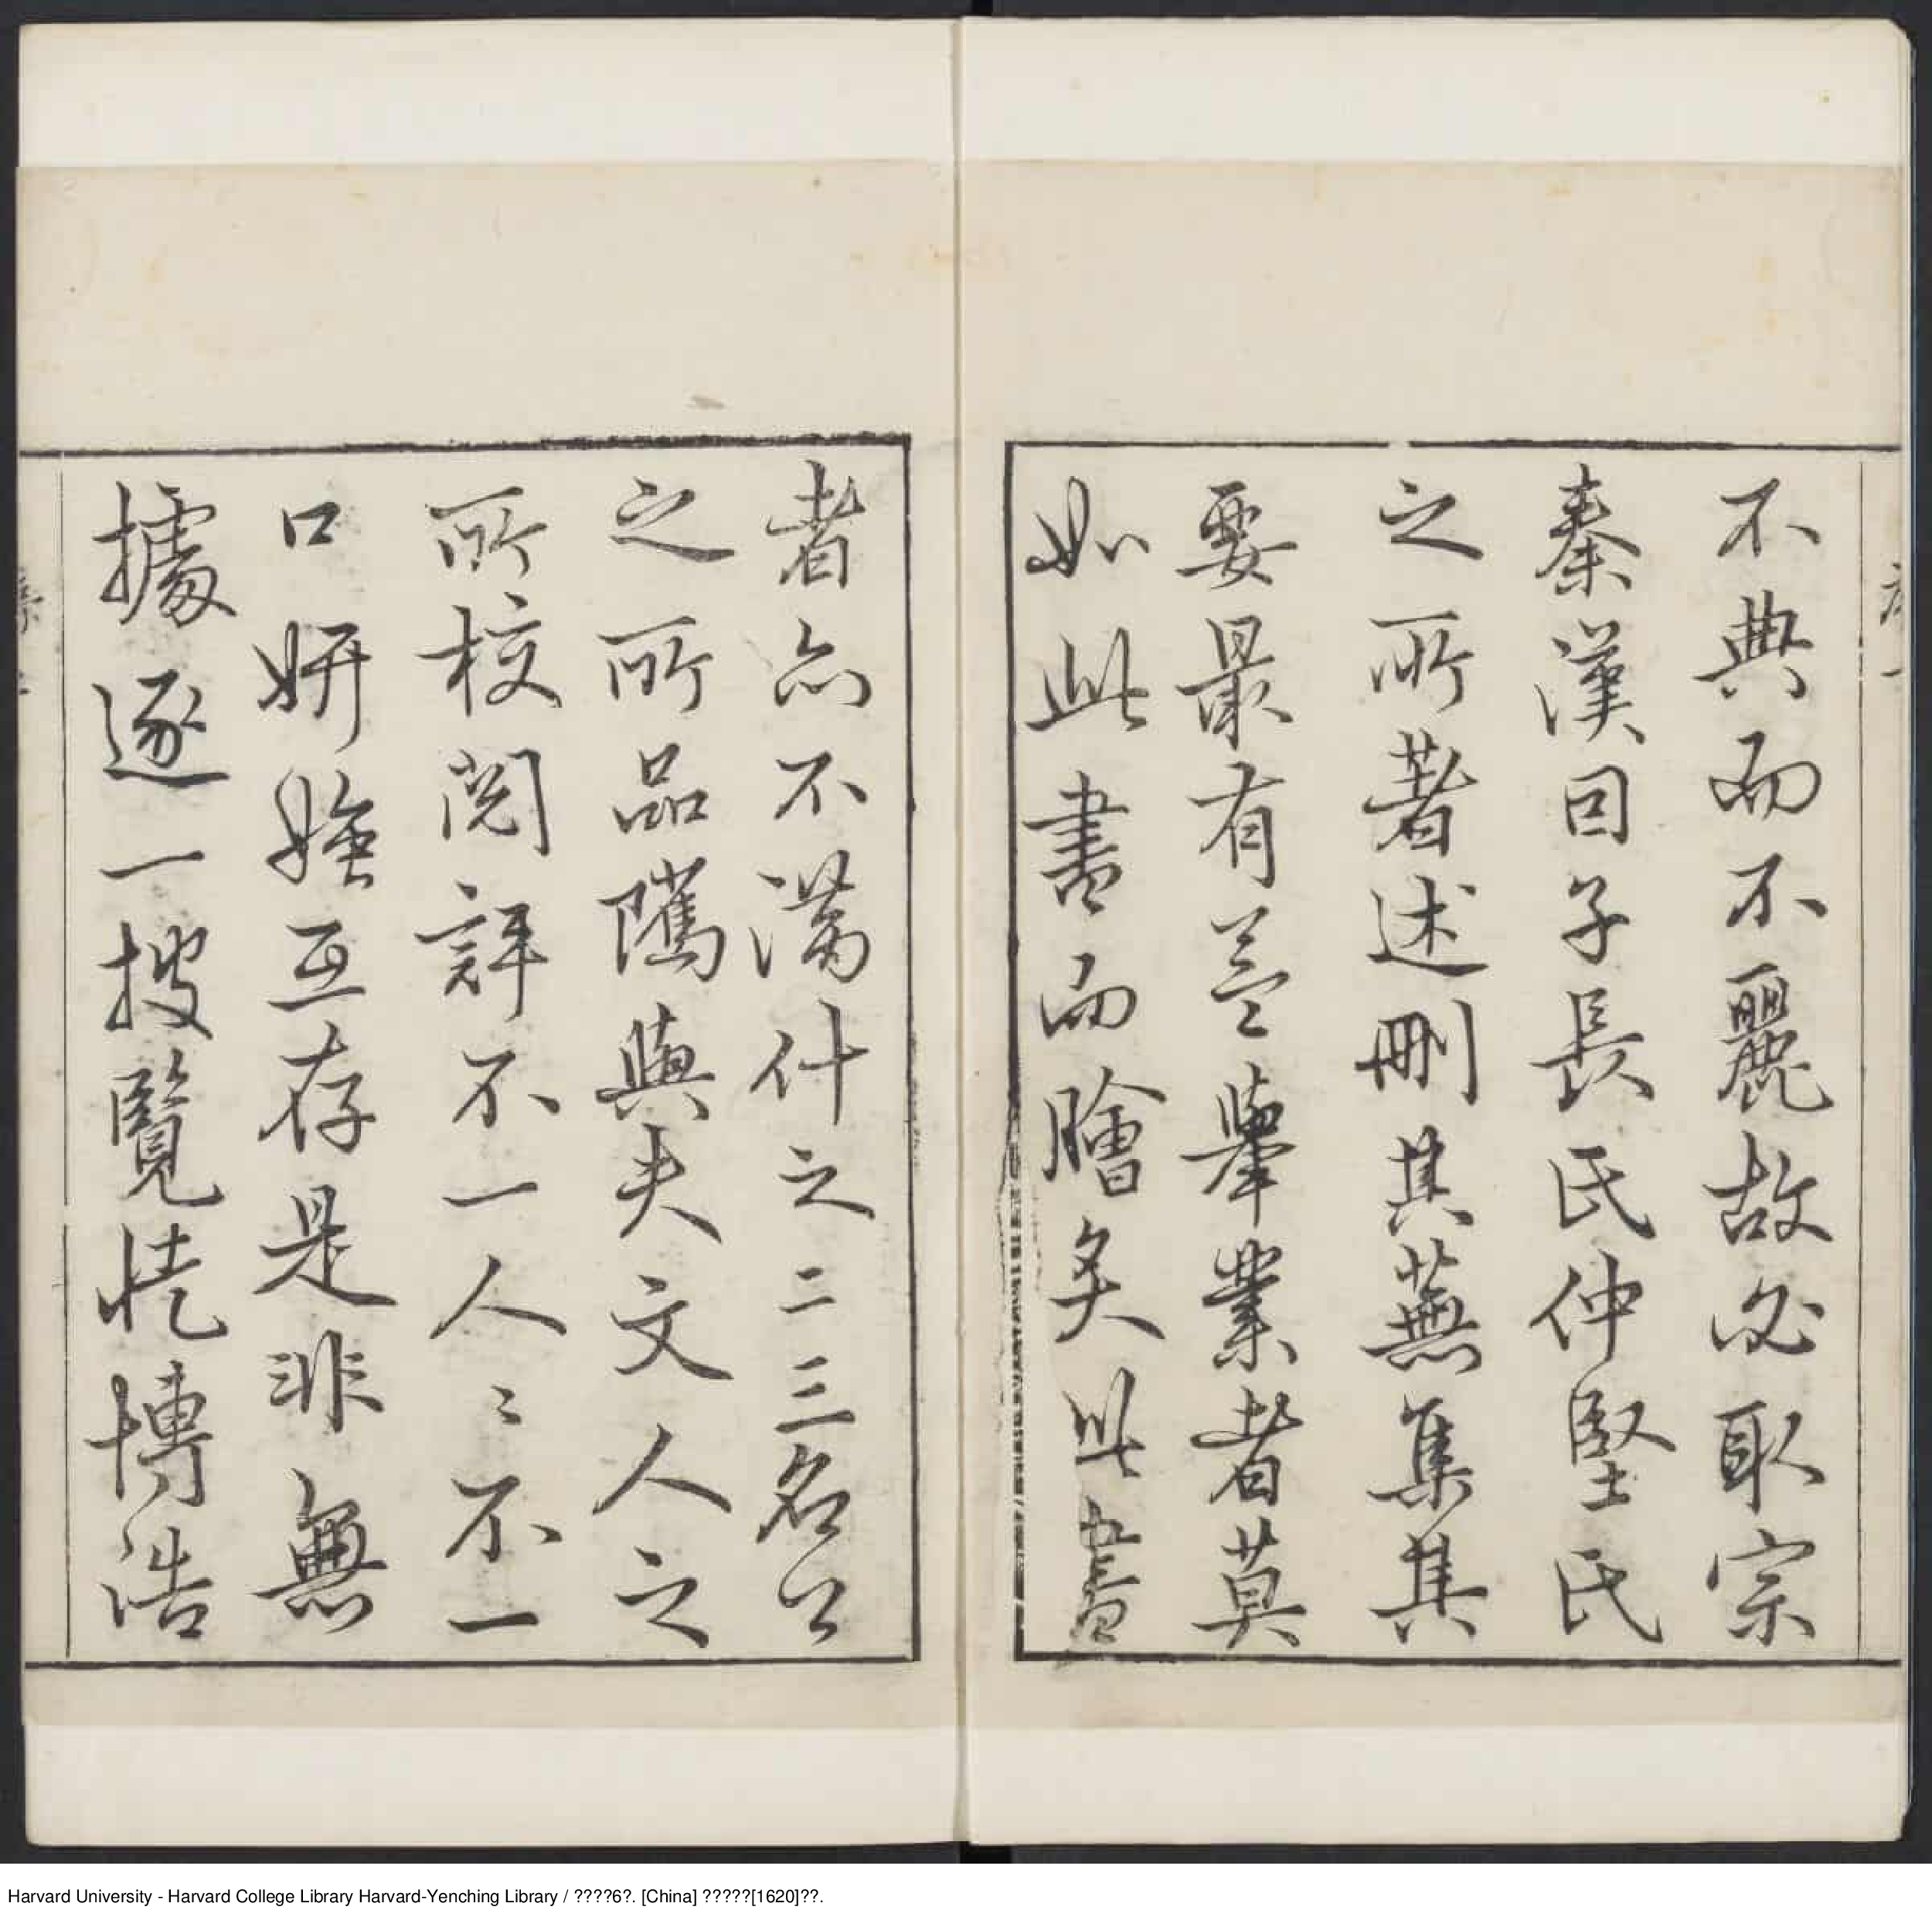 不典而不麗故必取宗
秦漢因子長氏仲堅氏
之所著述刪其蕪集其
要最有益舉業者莫
如此書而膾炙此書
者亦不滿什之二三名公
之所品隲與夫文人之
所校閱評不一人々不一
口妍媸互存是非無
據逐一搜覽恍博浩
Harvard University - Harvard College Library Harvard-Yenching Library / ????6?. [China] ?????[1620]??.